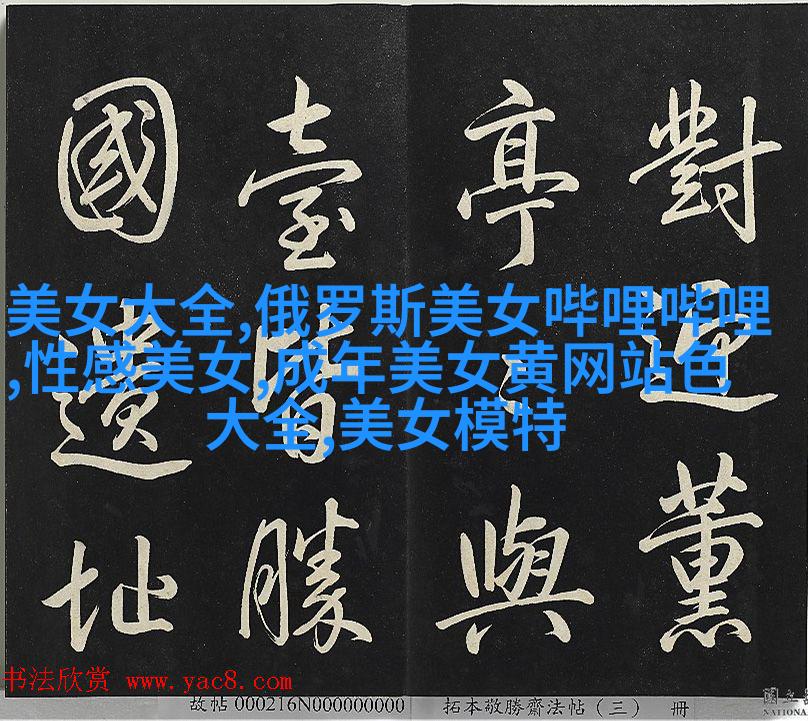 對迎薰
亭與
臺勝
國遺址
美女大全,俄罗斯美女哔哩哔哩
,性感美女,成年美女黄网站色
大全,美女模特
书法欣赏 www.yac8.com
故帖 000216N000000000 拓本敬勝齋法帖（三） 册
國立
NATIONA